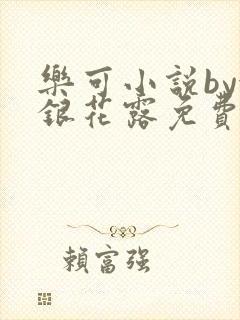 樂可小說by
銀花露免費
賴富强